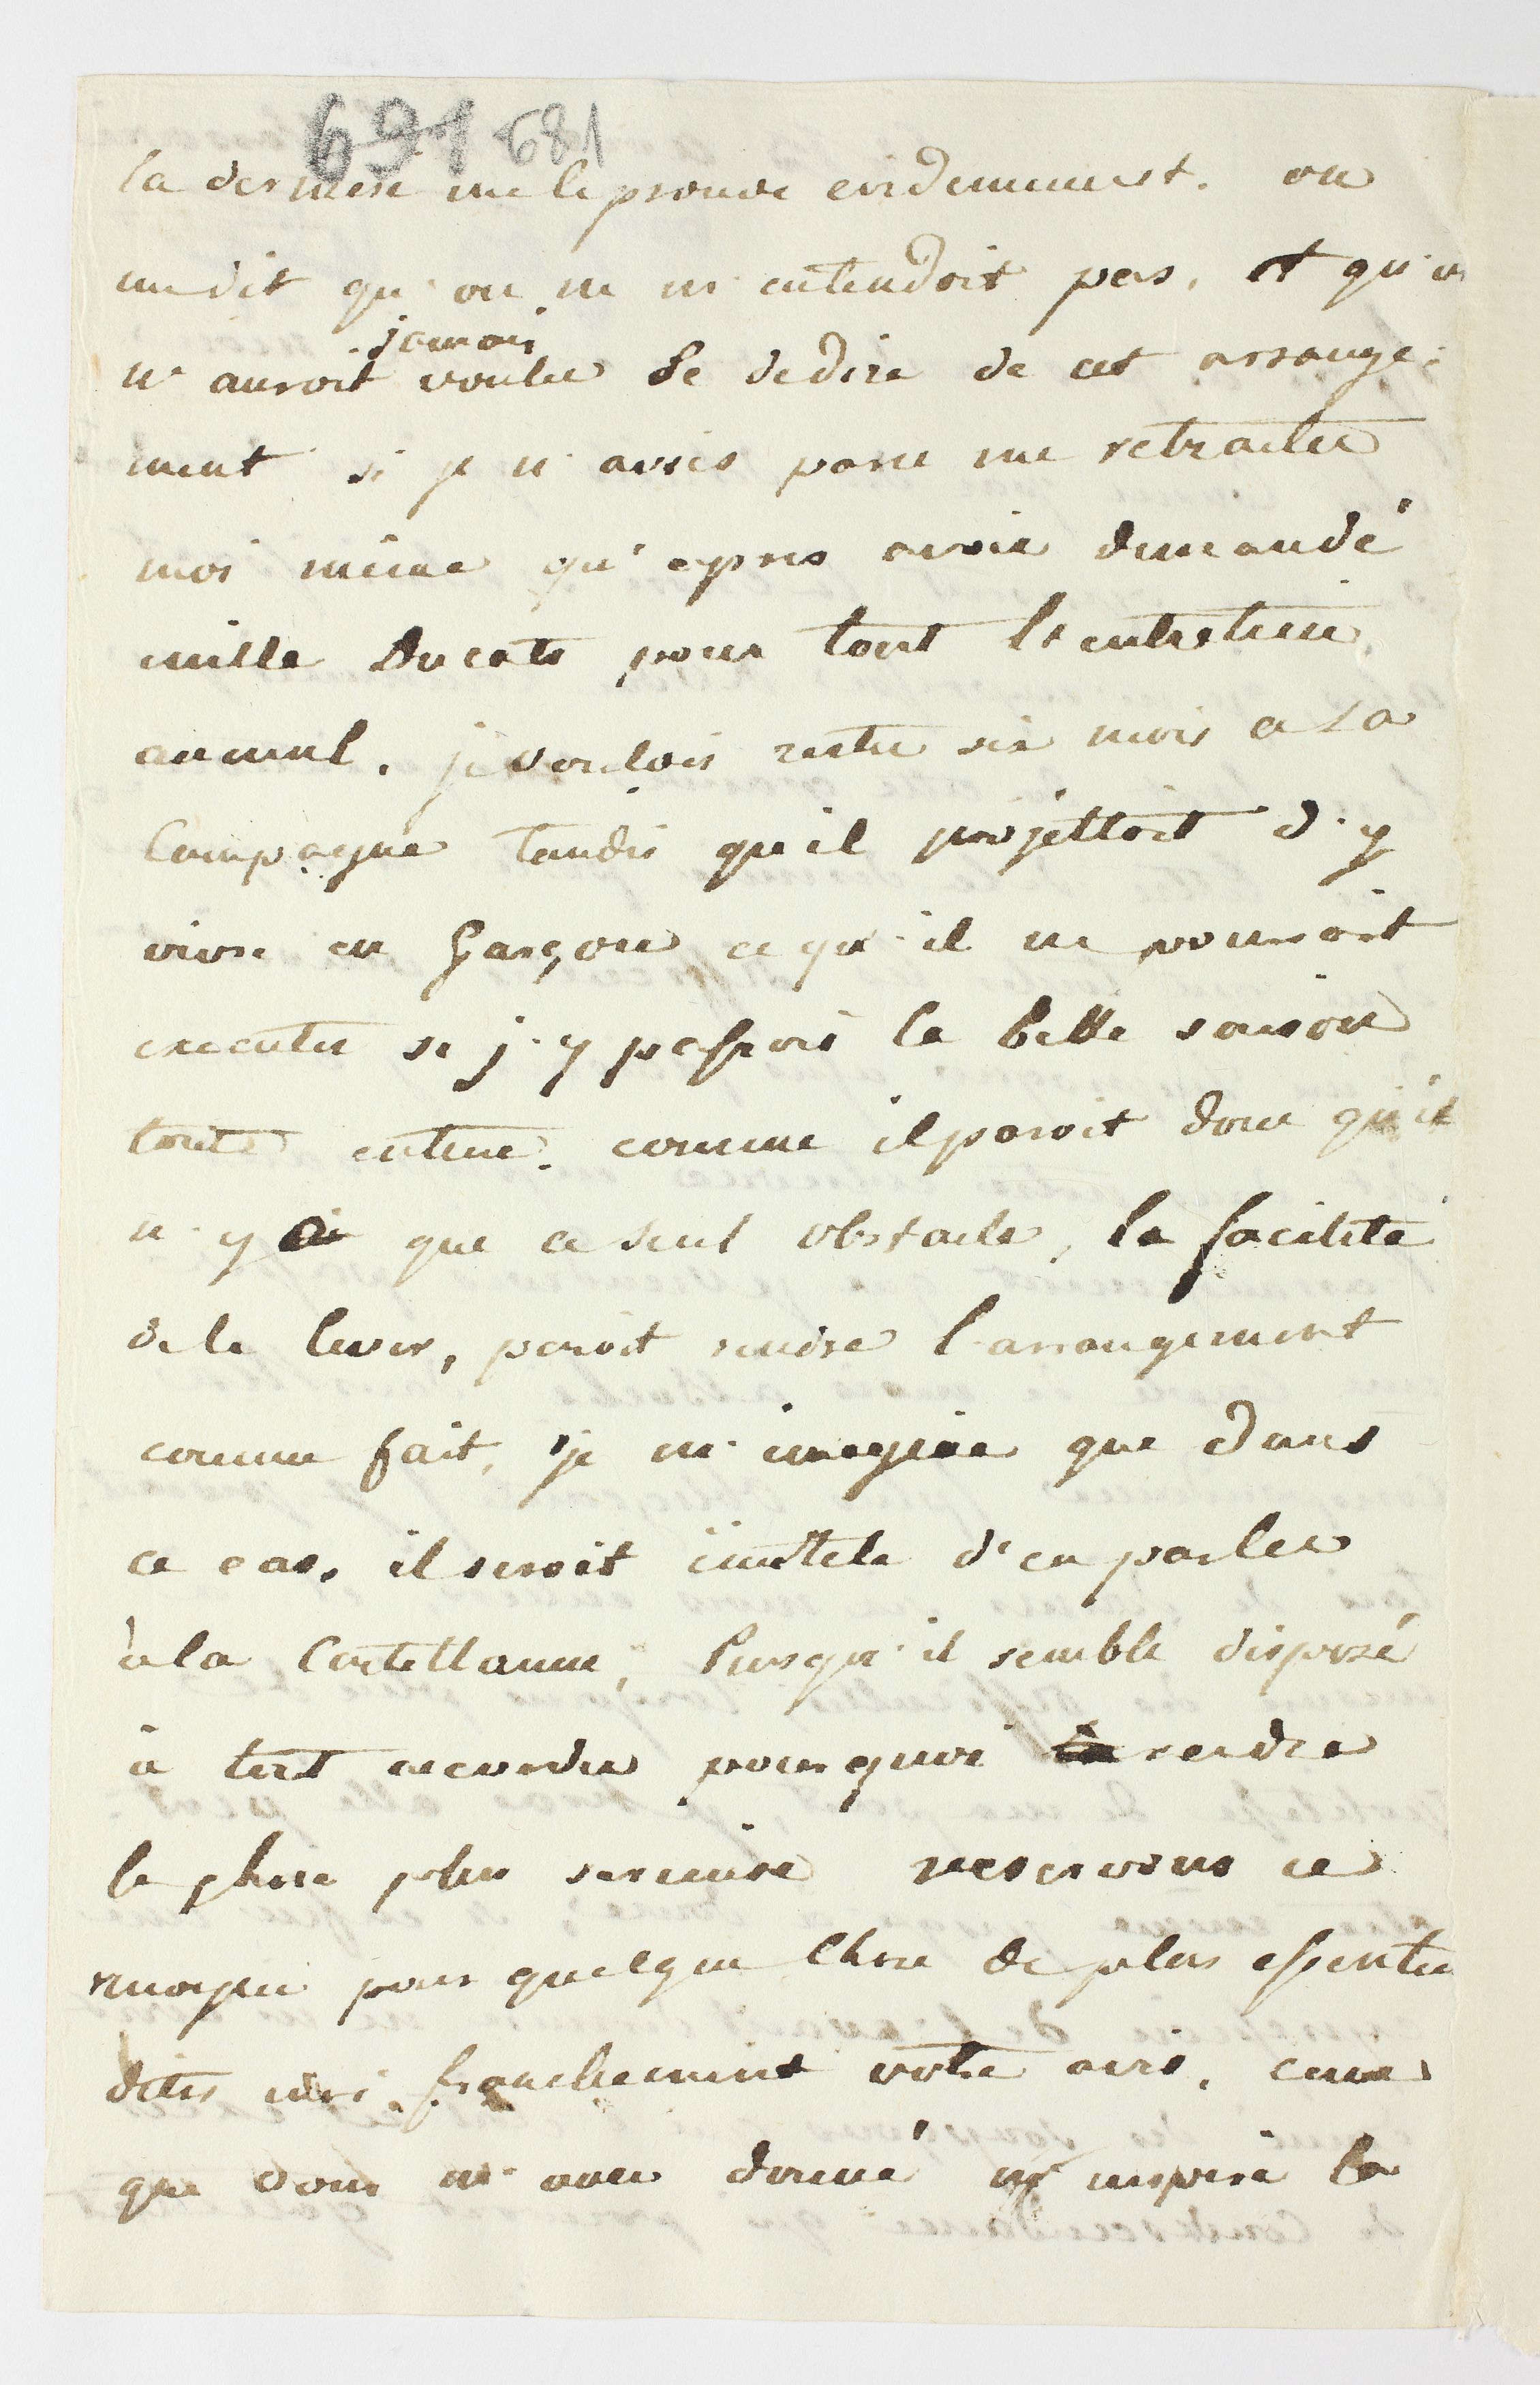 691 681
la derniere me le prouve evidemment. on
me dit qu'on ne m'entendoit pas, et qu'on
jamais
n'auroit voulu se dedire de cet arrange-
ment si je n'avois parue me retracter
moi même qu'apres avoir demandé
mille Ducats pour tout l'entretien
annuel. je voulois rester six mois a La
Campagne tandis que il projettoit d'y
vivre en Garçon ce qu'il ne pourroit
executer si j'y passois la belle saison
toute entiere. comme il paroit donc qu'il
n'y a que ce seul obstacle, la facilité
de le lever, paroit rendre l'arrangement
comme fait, je m'imagine que dans
ce cas, il seroit inutele d'en parler
à la Castellanne, Puisqu'il semble disposé
à tout accorder pourquoi rendre
la chose plus serieuse reservons ce
moyen pour quelque chose de plus essentiel
dites moi franchement votre avis, ceux
que vous m'avez donné m'inspire la